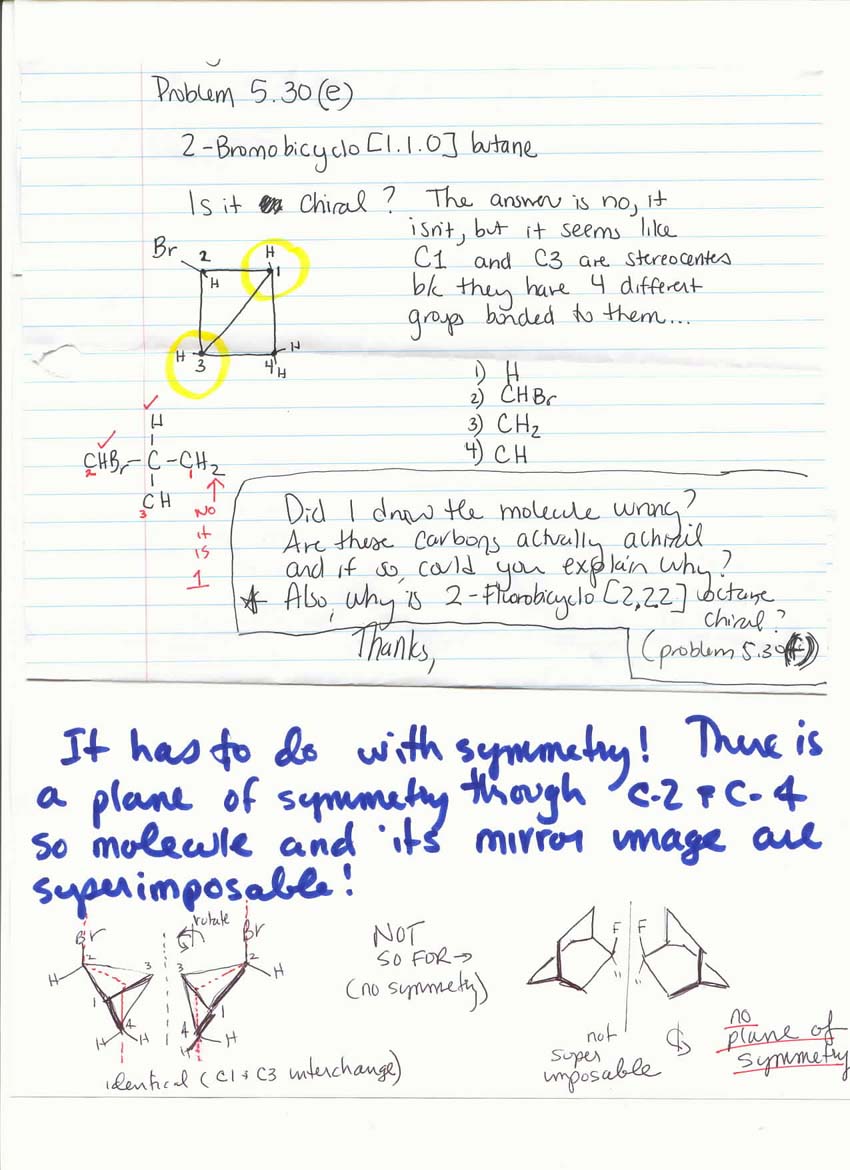 Problem 5.30(e)
2-Bromobicyclo[1.1.0] butane
Is it Chiral? The answer is no, it
isn't, but it seems like
C1 and C3 are stereocentes
b/c they have 4 different
groups bonded to them...
Br 2 H
H 1
H 3 4 H
H
1) H
2) CHBr
3) CH2
4) CH
H
CHBr-C-CH2
2 1
CH
3
NO
it
is
1
Did I draw the molecule wrong?
Are these carbons actually achiral
and if so, could you explain why?
Also, why is 2-Fluorobicyclo[2,2.2] octane
chiral?
Thanks,
(problem 5.30(f))
It has to do with symmetry! There is
a plane of symmetry through C-2 + C-4
so molecule and its mirror image are
superimposable!
rotate
Br Br
2 3 3 2
H H
1 1
4 4
H H H H
identical (C1 & C3 interchange)
NOT
SO FOR→
(no symmetry)
F F
H H
not
super
imposable
no
plane of
symmetry